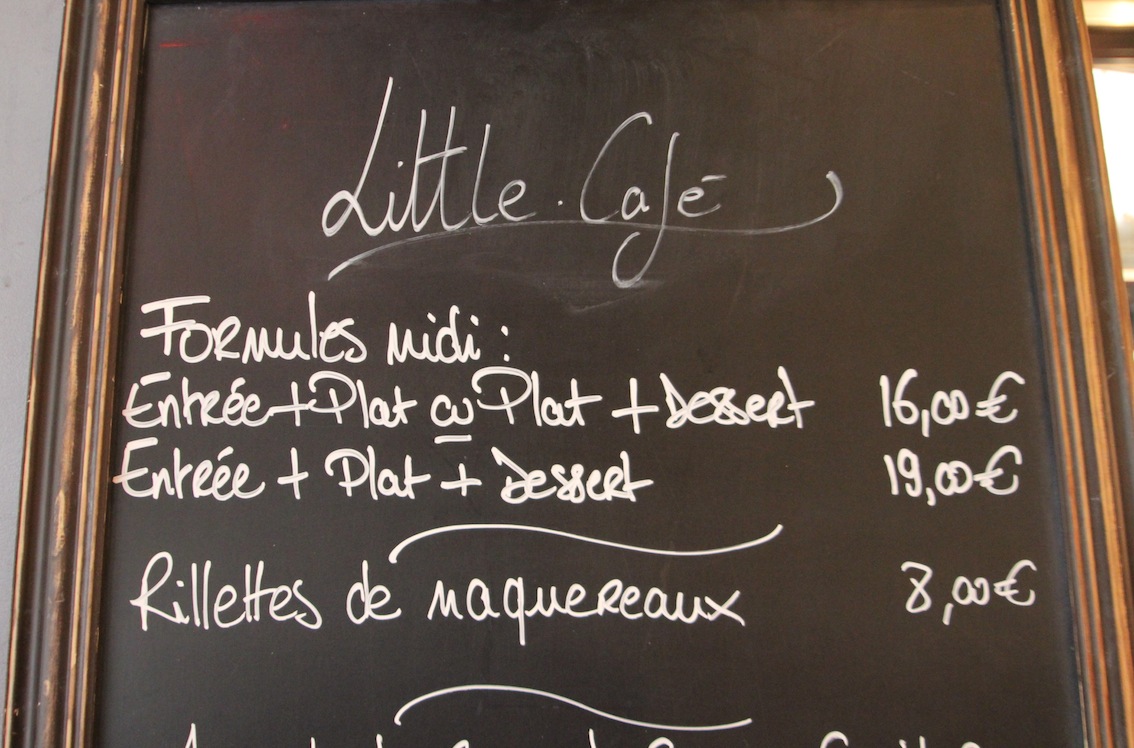 Little. Café
Formules midi :
Entrée + Plat ou Plat + Dessert 16,00 €
Entrée + Plat + Dessert 19,00 €
Rillettes de maquereaux 8,00 €